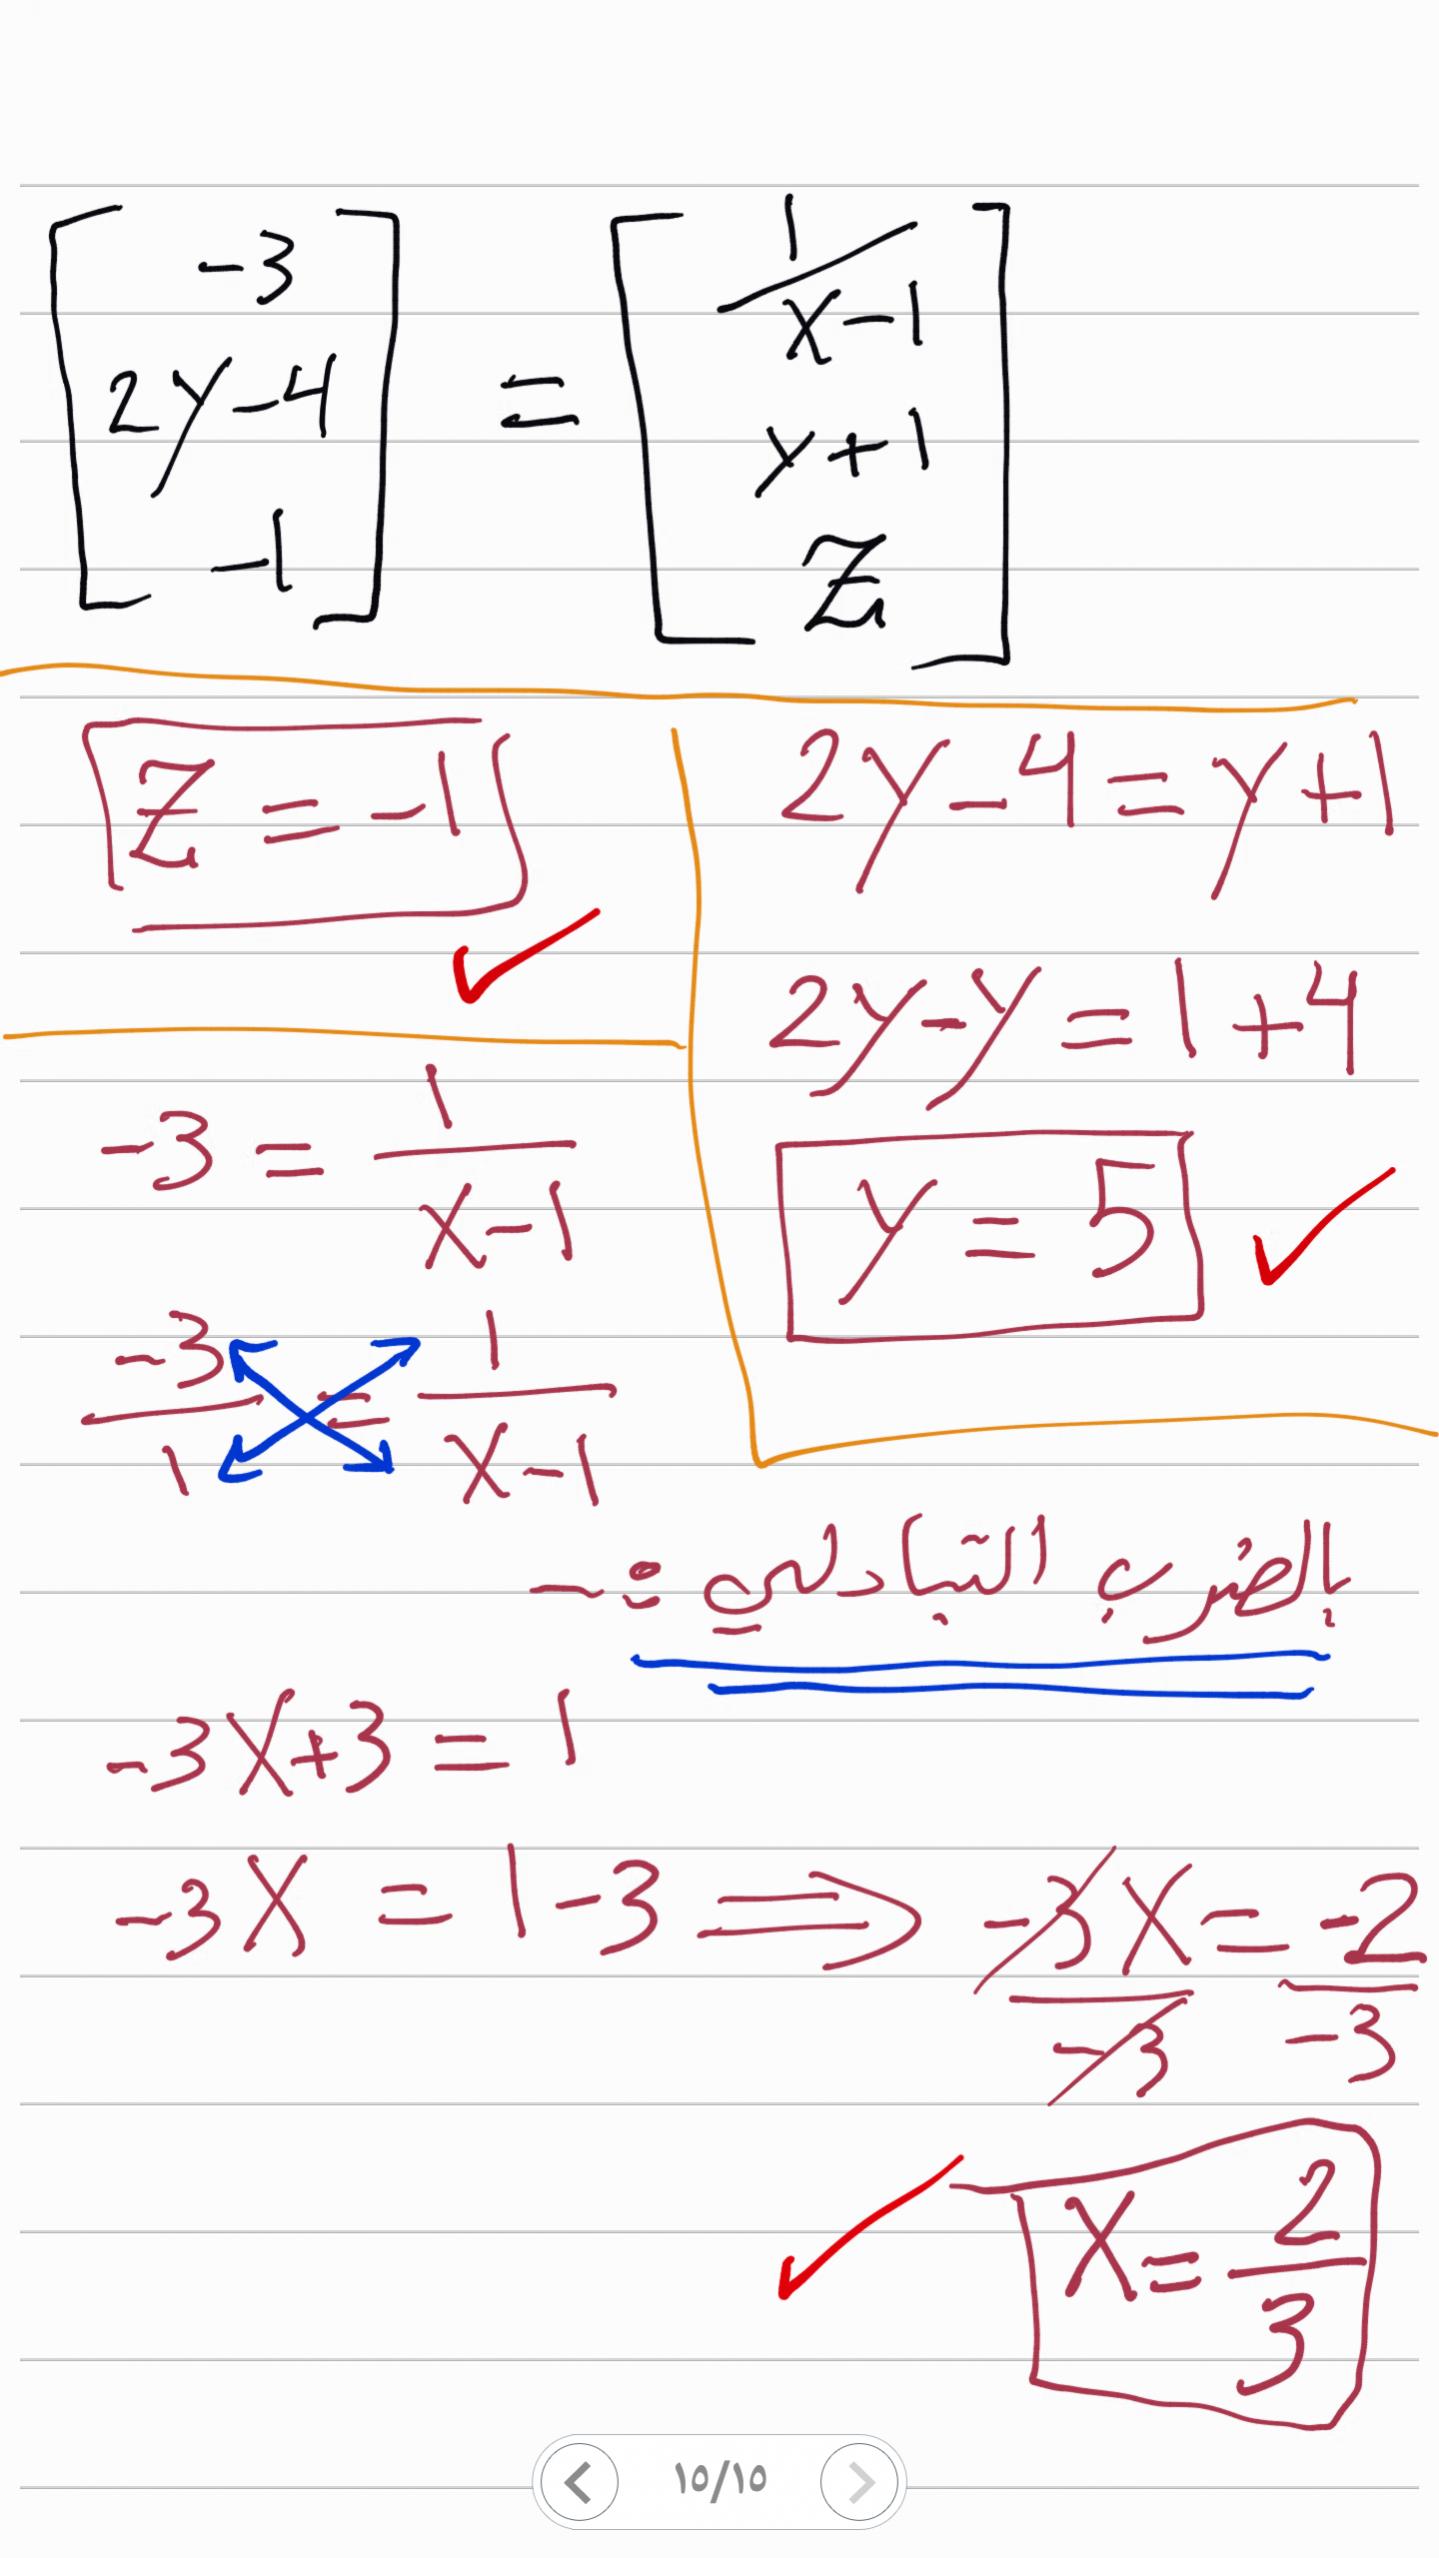 [ -3 ] = [ 1/(x-1) ]
[ 2y-4 ] = [ y+1 ]
[ -1 ] = [ Z ]
Z = -1
2y-4 = y+1
2y-y = 1+4
y = 5
-3 = 1/(x-1)
-3/1 = 1/(x-1)
بالضرب التبادلي :-
-3x+3 = 1
-3x = 1-3 ⇒ -3x/-3 = -2/-3
x = 2/3
١٥/١٥